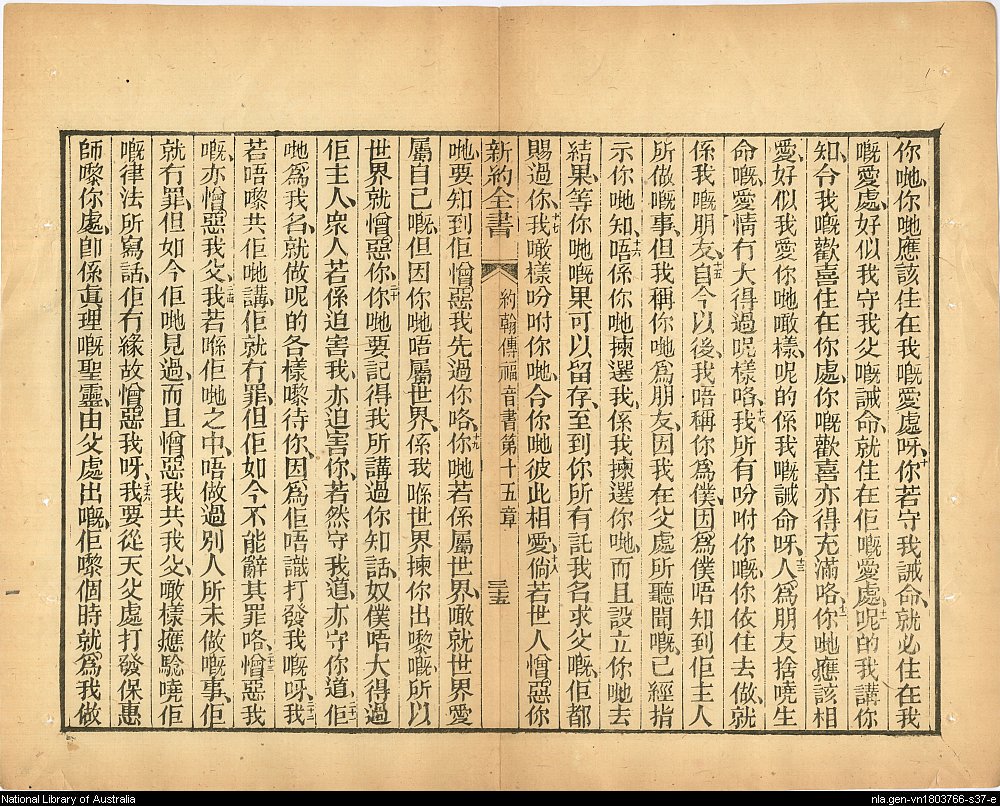 你哋、你哋應該住在我嘅愛處呀、十你若守我誡命、就必住在我
嘅愛處、好似我守我父嘅誡命、就住在佢嘅愛處、十一呢的我講你
知、令我嘅歡喜住在你處、你嘅歡喜亦得充滿咯、十二你哋應該相
愛、好似我愛你哋噉樣、呢的係我嘅誡命呀、十三人爲朋友捨曉生
命嘅愛情、冇大得過呢樣咯、十四我所有吩咐你嘅、你依住去做、就
係我嘅朋友、十五自今以後、我唔稱你爲僕、因爲僕唔知到佢主人
所做嘅事、但我稱你哋爲朋友、因我在父處所聽聞嘅、已經指
示你哋知、十六唔係你哋揀選我、係我揀選你哋、而且設立你哋去
結果、等你哋嘅果可以留存、至到你所有託我名求父嘅、佢都
賜過你、十七我噉樣吩咐你哋、令你哋彼此相愛、十八倘若世人憎惡你
新約全書 約翰傳福音書第十五章 三十五
哋、要知到佢憎惡我先過你咯、十九你哋若係屬世界、噉就世界愛
屬自己嘅、但因你哋唔屬世界、係我喺世界揀你出嚟嘅、所以
世界就憎惡你、二十你哋要記得我所講過你知話、奴僕唔大得過
佢主人、衆人若係迫害我、亦迫害你、若然守我道、亦守你道、二十一佢
哋爲我名、就做呢的各樣嚟待你、因爲佢唔識打發我嘅呀、二十二我
若唔嚟共佢哋講、佢就冇罪、但佢如今不能辭其罪咯、二十三憎惡我
嘅、亦憎惡我父、二十四我若喺佢哋之中、唔做過別人所未做嘅事、佢
就冇罪、但如今佢哋見過、而且憎惡我共我父、噉樣應驗曉佢
嘅律法所寫話、佢冇緣故憎惡我呀、二十六我要從天父處打發保惠
師嚟你處、卽係眞理嘅聖靈、由父處出嘅、佢嚟個時就爲我做
National Library of Australia
nla.gen-vn1803766-s37-e